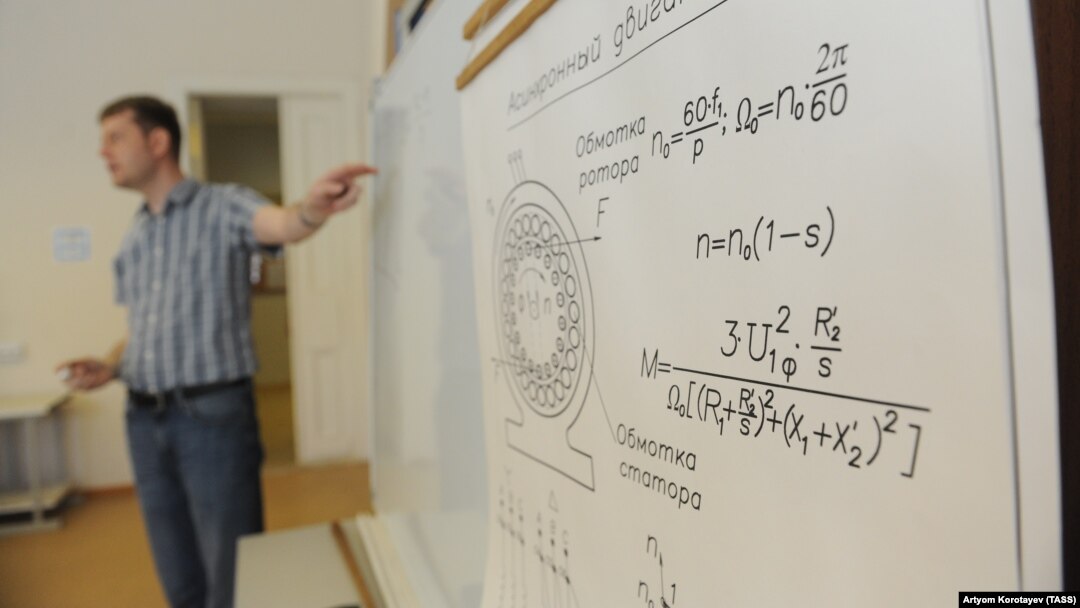 Асинхронный
Обмотка
ротора
n₀=60·f₁/p; Ω₀=n₀·2π/60
F
n=n₀(1-s)
n
M=3·U₁ф²·R₂′/s / Ω₀[(R₁+R₂′/s)²+(x₁+x₂′)²]
Обмотка
статора
n
n₀ 1
Artyom Korotayev (TASS)